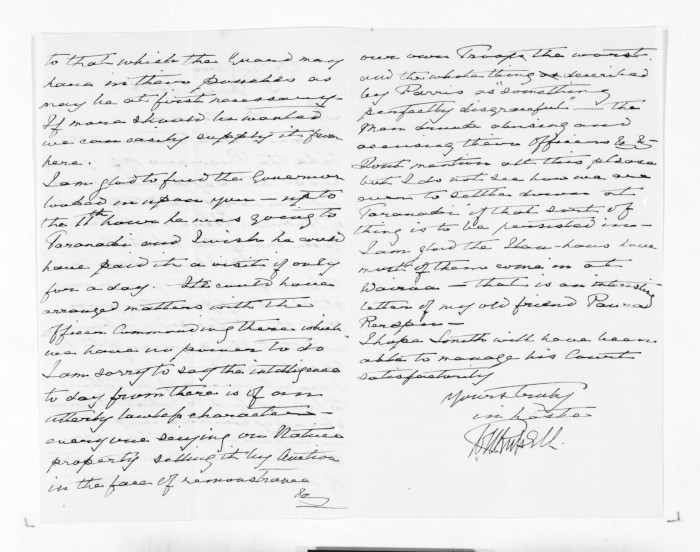 to that which the Guard may
have in their pouches as
may be at first necessary -
If more should be wanted
we can easily supply it from
here.
I am glad to find the Governor
looked in upon you - up to
the 11th hour he was going to
Taranaki and I wish he could
have paid it a visit if only
for a day. He could have
arranged matters with the
Officer Commanding there which
we have no power to do
I am sorry to say the intelligence
to day from there is of an
utterly lawless character -
everyone seizing on Native
property selling it by Auction
in the face of remonstrance
&c
our own Troops the worst.
and the whole thing as described
by Parris as "something
perfectly disgraceful" - the
Men drunk abusing and
accusing their officers &c &c
Dont mention all this please
but I do not see how we are
ever to settle down at
Taranaki if that sort of
thing is to be persisted in -
I am glad the Hau-haus have
most of them come in at
Wairoa - that is an interesting
letter of my old friend
I hope Smith will have been
able to manage his Court
satisfactorily
Yours truly
in haste